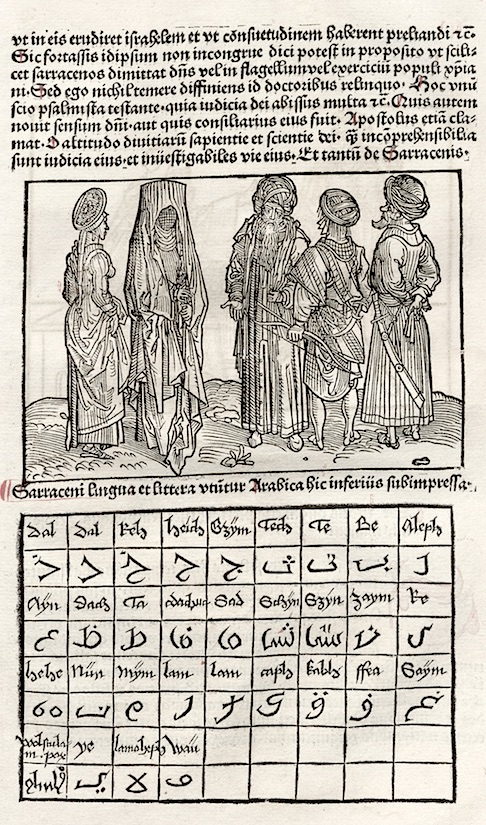 vt in eis erudiret israhelem et vt cōsuetudinem haberent preliandi ⁊c̄·
Sic fortassis idipsum non incongrue dici potest in proposito vt scili-
cet sarracenos dimittat dn̄s vel in flagellum vel exerciciū populi xp̄ia
ni· Sed ego nichil temere diffiniens id doctoribus relinquo· Hoc vnū
scio psalmista testante· quia iudicia dei abissus multa ⁊c̄· Quis autem
nouit sensum dn̄i· aut quis consiliarius eius fuit· Apostolus etiā cla-
mat· O altitudo diuitiarū sapientie et scientie dei· q̄ incōprehensibilia
sunt iudicia eius· et inuestigabiles vie eius· Et tantū de Sarracenis·
Sarraceni lingua et littera vtūtur Arabica hic inferiūs subimpressa·
Dal Dal Keh Heich Gzÿm Tech Te Be Aleph
ذ د خ ح ج ث ت ب ا
Aÿn Dach Ta Sad Schÿn Szÿn Zaym Re
ع ظ ط ض ص ش س ز ر
hehe Nūn Mÿm lam lam caph kabh ffea Gaÿm
ه ن م ل ك ق ف غ
ye lamoheph Wau
ي لا و